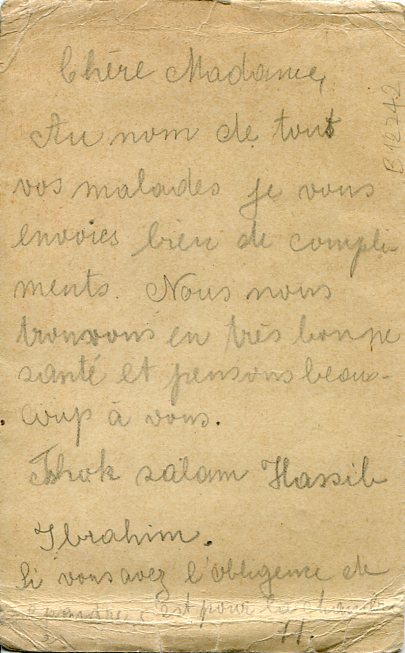 Chère Madame,
Au nom de tout
vos malades je vous
envoies bien de compli-
ments. Nous nous
trouvons en très bonne
santé et pensons beau-
coup à vous.
salam Hassib
Ibrahim.
Si vous avez l'obligence de
c'est pour la
11.
B12242